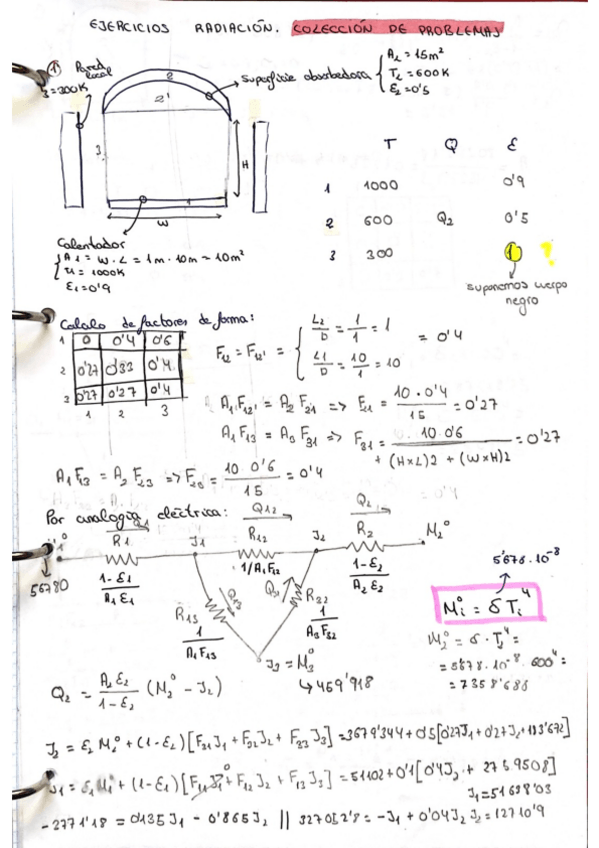 EJERCICIOS RADIACIÓN. COLECCIÓN DE PROBLEMAS
① Pared local
3 = 300K
2
2'
3
H
1
W
Superficie absorbedora { A2 = 15m²
T2 = 600K
ε2 = 0'5
T Q ε
1 1000 0'9
2 600 Q2 0'5
3 300 1 ?
suponemos cuerpo negro
Calentador
{ A1 = W·L = 1m · 10m ~ 10m²
T1 = 1000K
ε1 = 0'9
Calculo de factores de forma:
1 0 0'4 0'6
2 0'27 0'33 0'4
3 0'27 0'27 0'4
1 2 3
F12 = F12' = { L2/D = 1/1 = 1
L1/D = 10/1 = 10
= 0'4
A1F12' = A2F21 => F21 = 10·0'4 / 15 = 0'27
A1F13 = A3F31 => F31 = 10·0'6 / + (H×L)2 + (W×H)2 = 0'27
A1F13 = A2F23 => F23 = 10·0'6 / 15 = 0'4
Por analogía eléctrica:
Q1 Q12 Q2
M1° R1 J1 R12 J2 R2 M2°
56780
1-ε1 / A1ε1
1/A1F12
1-ε2 / A2ε2
R13 Q13
1 / A1F13
Q32 R32
1 / A3F32
J3 = M3°
↳ 459'918
5'676·10⁻⁸
Mi° = δTi⁴
M2° = σ·T2⁴ =
= 5'678·10⁻⁸·600⁴ =
= 7358'688
Q2 = A2ε2 / 1-ε2 (M2° - J2)
J2 = ε2M2° + (1-ε2)[F21J1 + F22J2 + F23J3] = 3679'344 + 0'5[0'27J1 + 0'27J2 + 183'672]
J1 = ε1M1° + (1-ε1)[F11J1 + F12J2 + F13J3] = 51102 + 0'1[0'4J2 + 275.9508]
J1 = 51638'03
-2771'18 = 0135J1 - 0'865J2 || = -J1 + 0'04J2 J2 = 12710'9